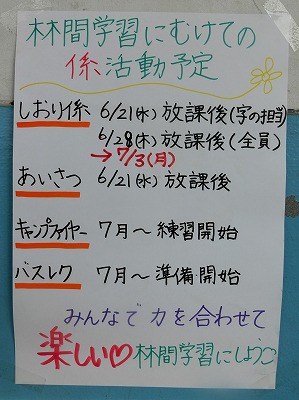 林間学習にむけての
係活動予定
しおり係 6/21(水) 放課後(字の担当)
6/28(木) 放課後(全員)
→7/3(月)
あいさつ 6/21(水) 放課後
キャンプファイヤー 7月〜 練習開始
バスレク 7月〜 準備開始
みんなで力を合わせて
楽しい♡林間学習にしよう